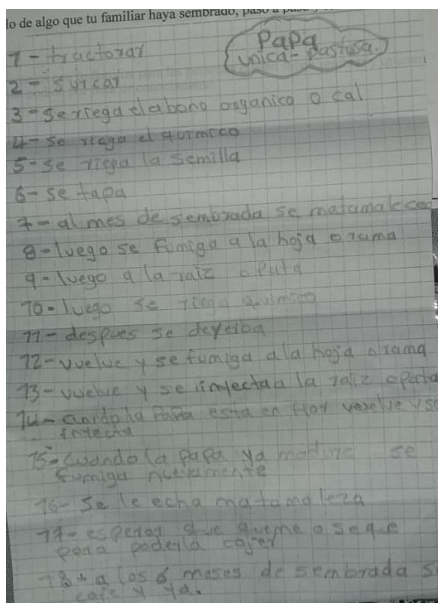 lo de algo que tu familiar haya sembrado, paso a paso y
Papa
unica - pastusa.
1 - tractorar
2 - surcar
3 - se riega el abono organico o cal
4 - se riaga el quimico
5 - se riega la semilla
6 - se tapa
7 - al mes de sembrada se matamalecea
8 - luego se fomiga a la hoja o rama
9 - luego a la raiz
10 - luego se riega quimico
11 - despues se deyerba
12 - vuelve y se fumiga a la hoja o rama
13 - vuelve y se inyecta a la raiz
14 - cuando la papa esta en flor vuelve y se
inyecta
15 - cuando la papa ya madure se
fumiga nuevamente
16 - se le echa matamaleza
17 - esperar que queme o seque
para poderla cojer
18 - a los 6 meses de sembrada s
coje y ya.